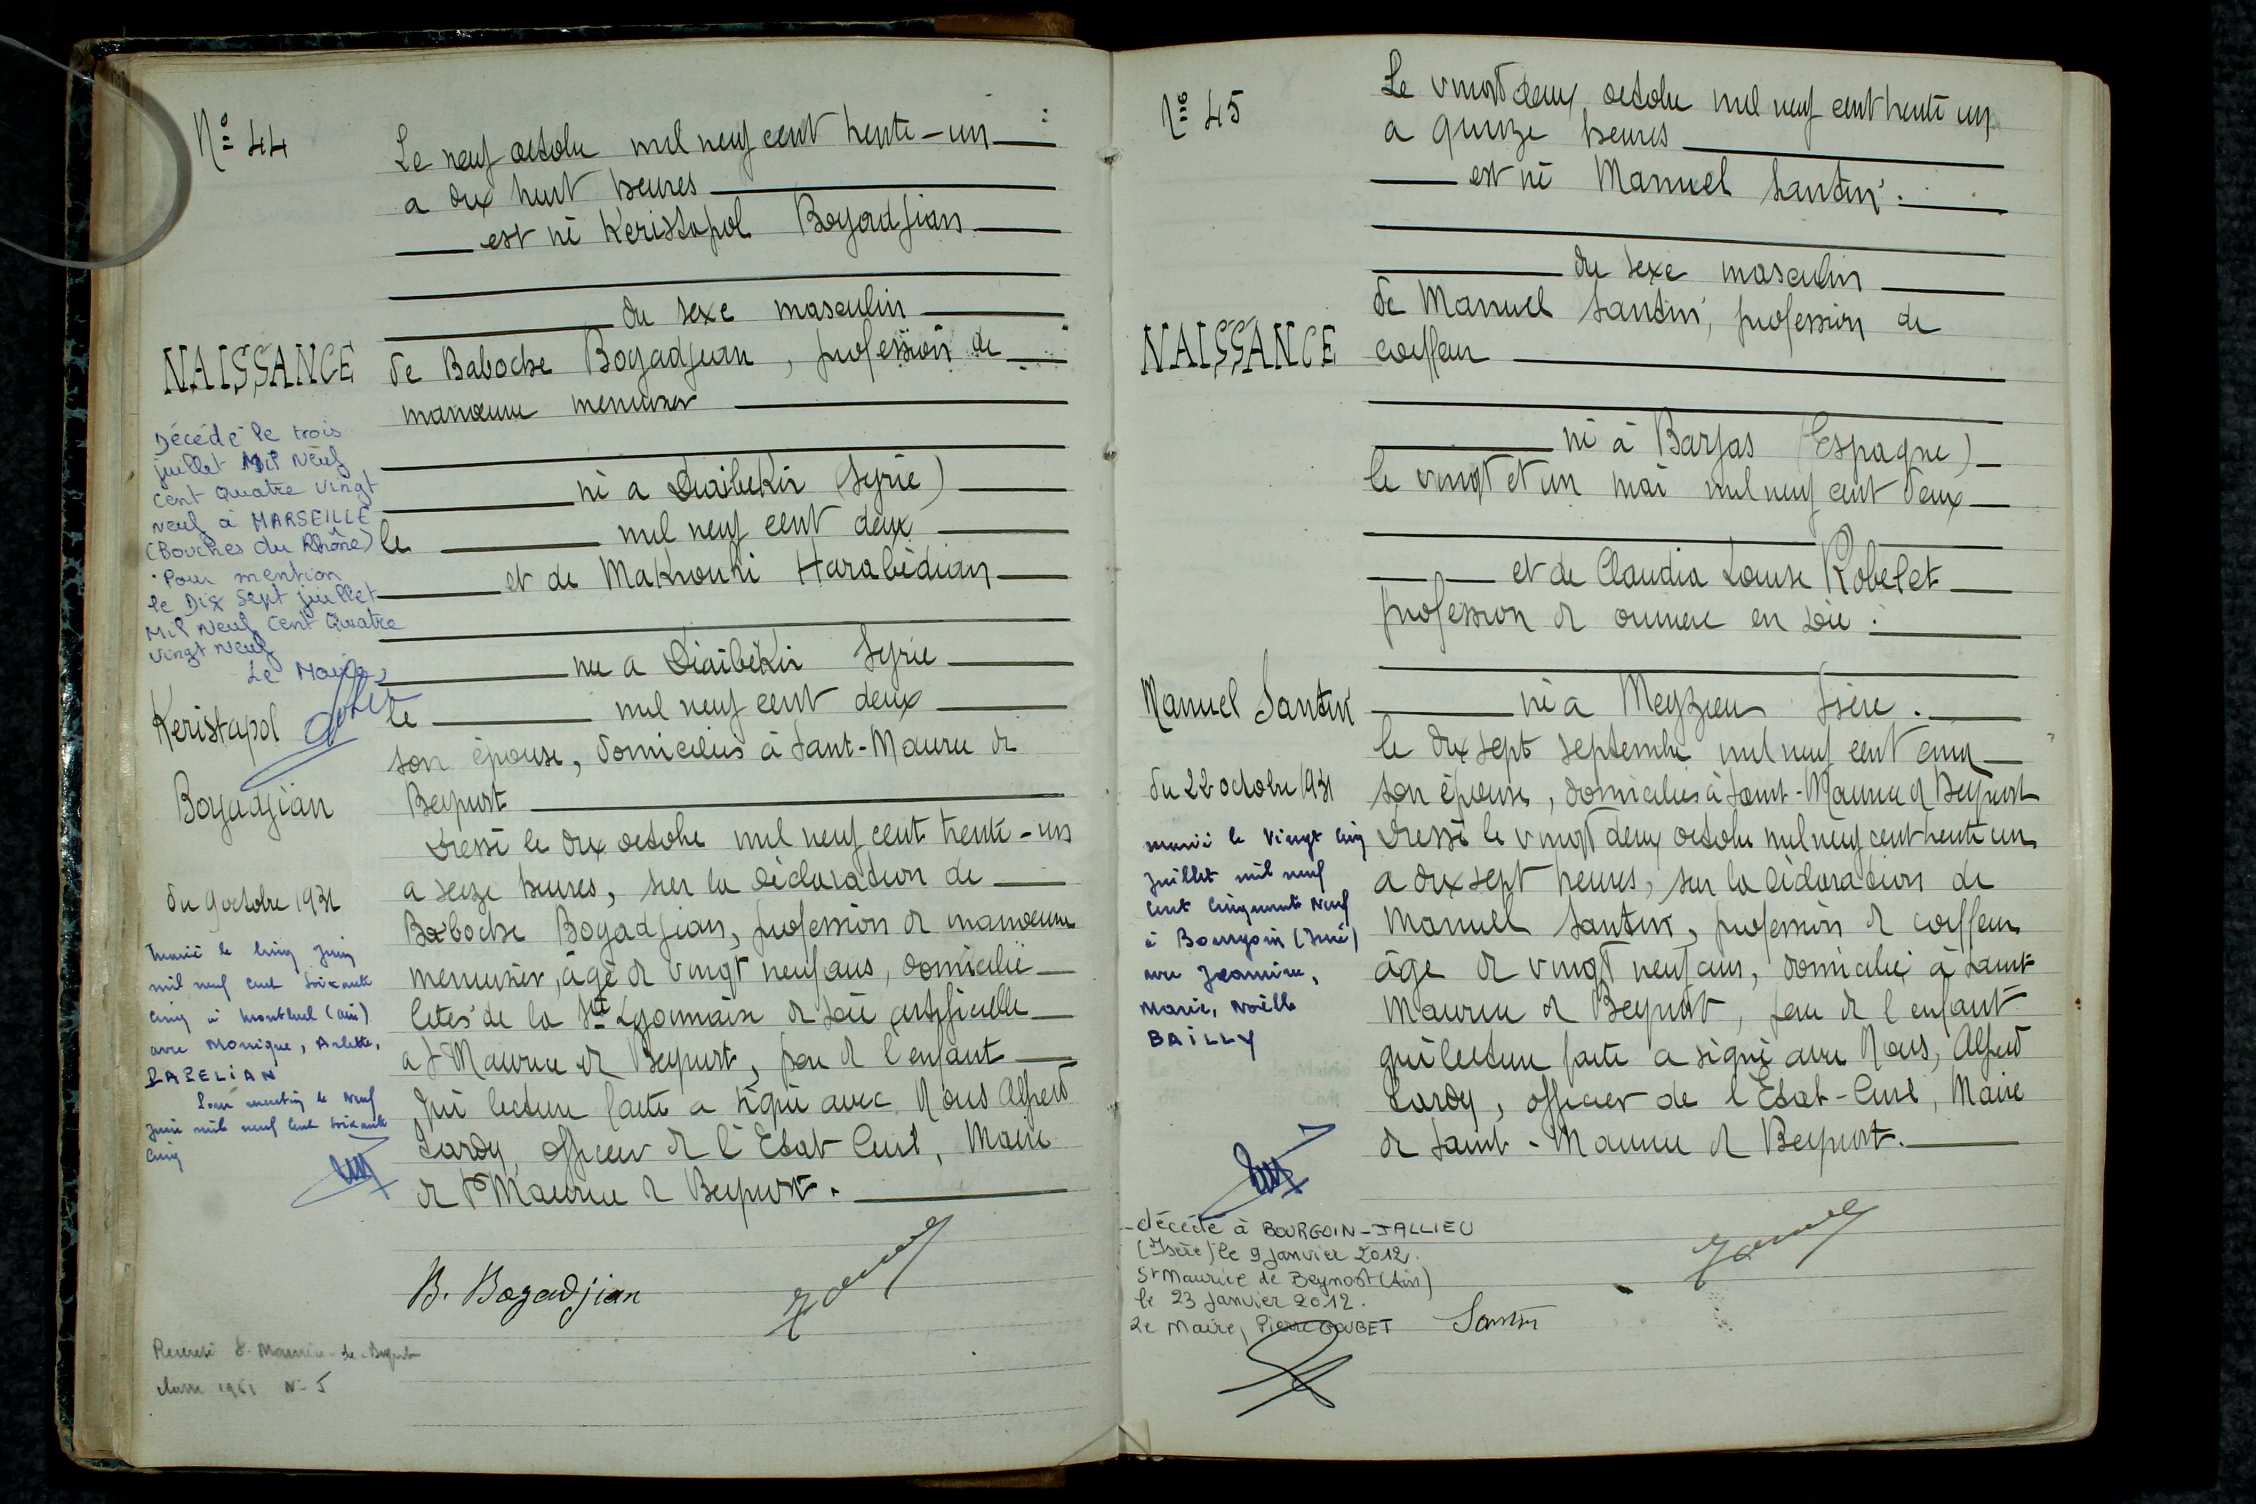 N° 44
NAISSANCE
Décédé le trois
juillet Mil Neuf
cent quatre vingt
neuf à MARSEILLE
(Bouches du Rhône)
Pour mention
le Dix sept juillet
Mil Neuf Cent Quatre
vingt Neuf
Le Maire,
Keristapol
Boyadjian
du 9 octobre 1931
Marié le cinq Juin
mil neuf cent soixante
cinq à Montluel (ain)
avec Monique, Arlette,
PAPELIAN
Pour mention le Neuf
Juin mil neuf cent soixante
cinq
Recensé St Maurice-de-Beynost
classe 1951 N° 5
Le neuf octobre mil neuf cent trente-un
a dix huit heures
est né Keristapol Boyadjian
du sexe masculin
de Baboche Boyadjian, profession de
manœuvre menuisier
né a Diaibékir (Syrie)
le mil neuf cent deux
et de Maknouhi Harabédian
née a Diaibékir Syrie
le mil neuf cent deux
son épouse, domiciliés à Saint-Maurice de
Beynost
Dressé le dix octobre mil neuf cent trente-un
a seize heures, sur la déclaration de
Baboche Boyadjian, profession de manœuvre
menuisier, âgé de vingt neuf ans, domicilié
cités de la Sté Lyonnaise de soie artificielle
a St Maurice de Beynost, père de l'enfant
qui lecture faite a signé avec Nous Alfred
Lardy, officier de l'Etat Civil, Maire
de St Maurice de Beynost.
B. Bogadjian
N° 45
NAISSANCE
Manuel Santin
du 22 octobre 1931
marié le vingt cinq
Juillet mil neuf
cent cinquante neuf
à Bourgoin (Isère)
avec Jeannine,
Marie, Noëlle
BAILLY
décédé à BOURGOIN-JALLIEU
(Isère) le 9 janvier 2012.
St Maurice de Beynost (Ain)
le 23 janvier 2012.
Le Maire, Pierre GOUBET
Le vingt deux octobre mil neuf cent trente un
a quinze heures
est né Manuel Santin.
du sexe masculin
de Manuel Santin, profession de
coiffeur
né à Barjas (Espagne)
le vingt et un mai mil neuf cent deux
et de Claudia Louise Robelet
profession de ouvrière en soie.
né a Meyzieu Isère.
le dix sept septembre mil neuf cent cinq
son épouse, domiciliés à Saint-Maurice de Beynost
Dressé le vingt deux octobre mil neuf cent trente un
a dix sept heures, sur la déclaration de
Manuel Santin, profession de coiffeur
âgé de vingt neuf ans, domicilié à Saint
Maurice de Beynost, père de l'enfant
qui lecture faite a signé avec Nous, Alfred
Lardy, officier de l'Etat-Civil, Maire
de Saint-Maurice de Beynost.
Santin